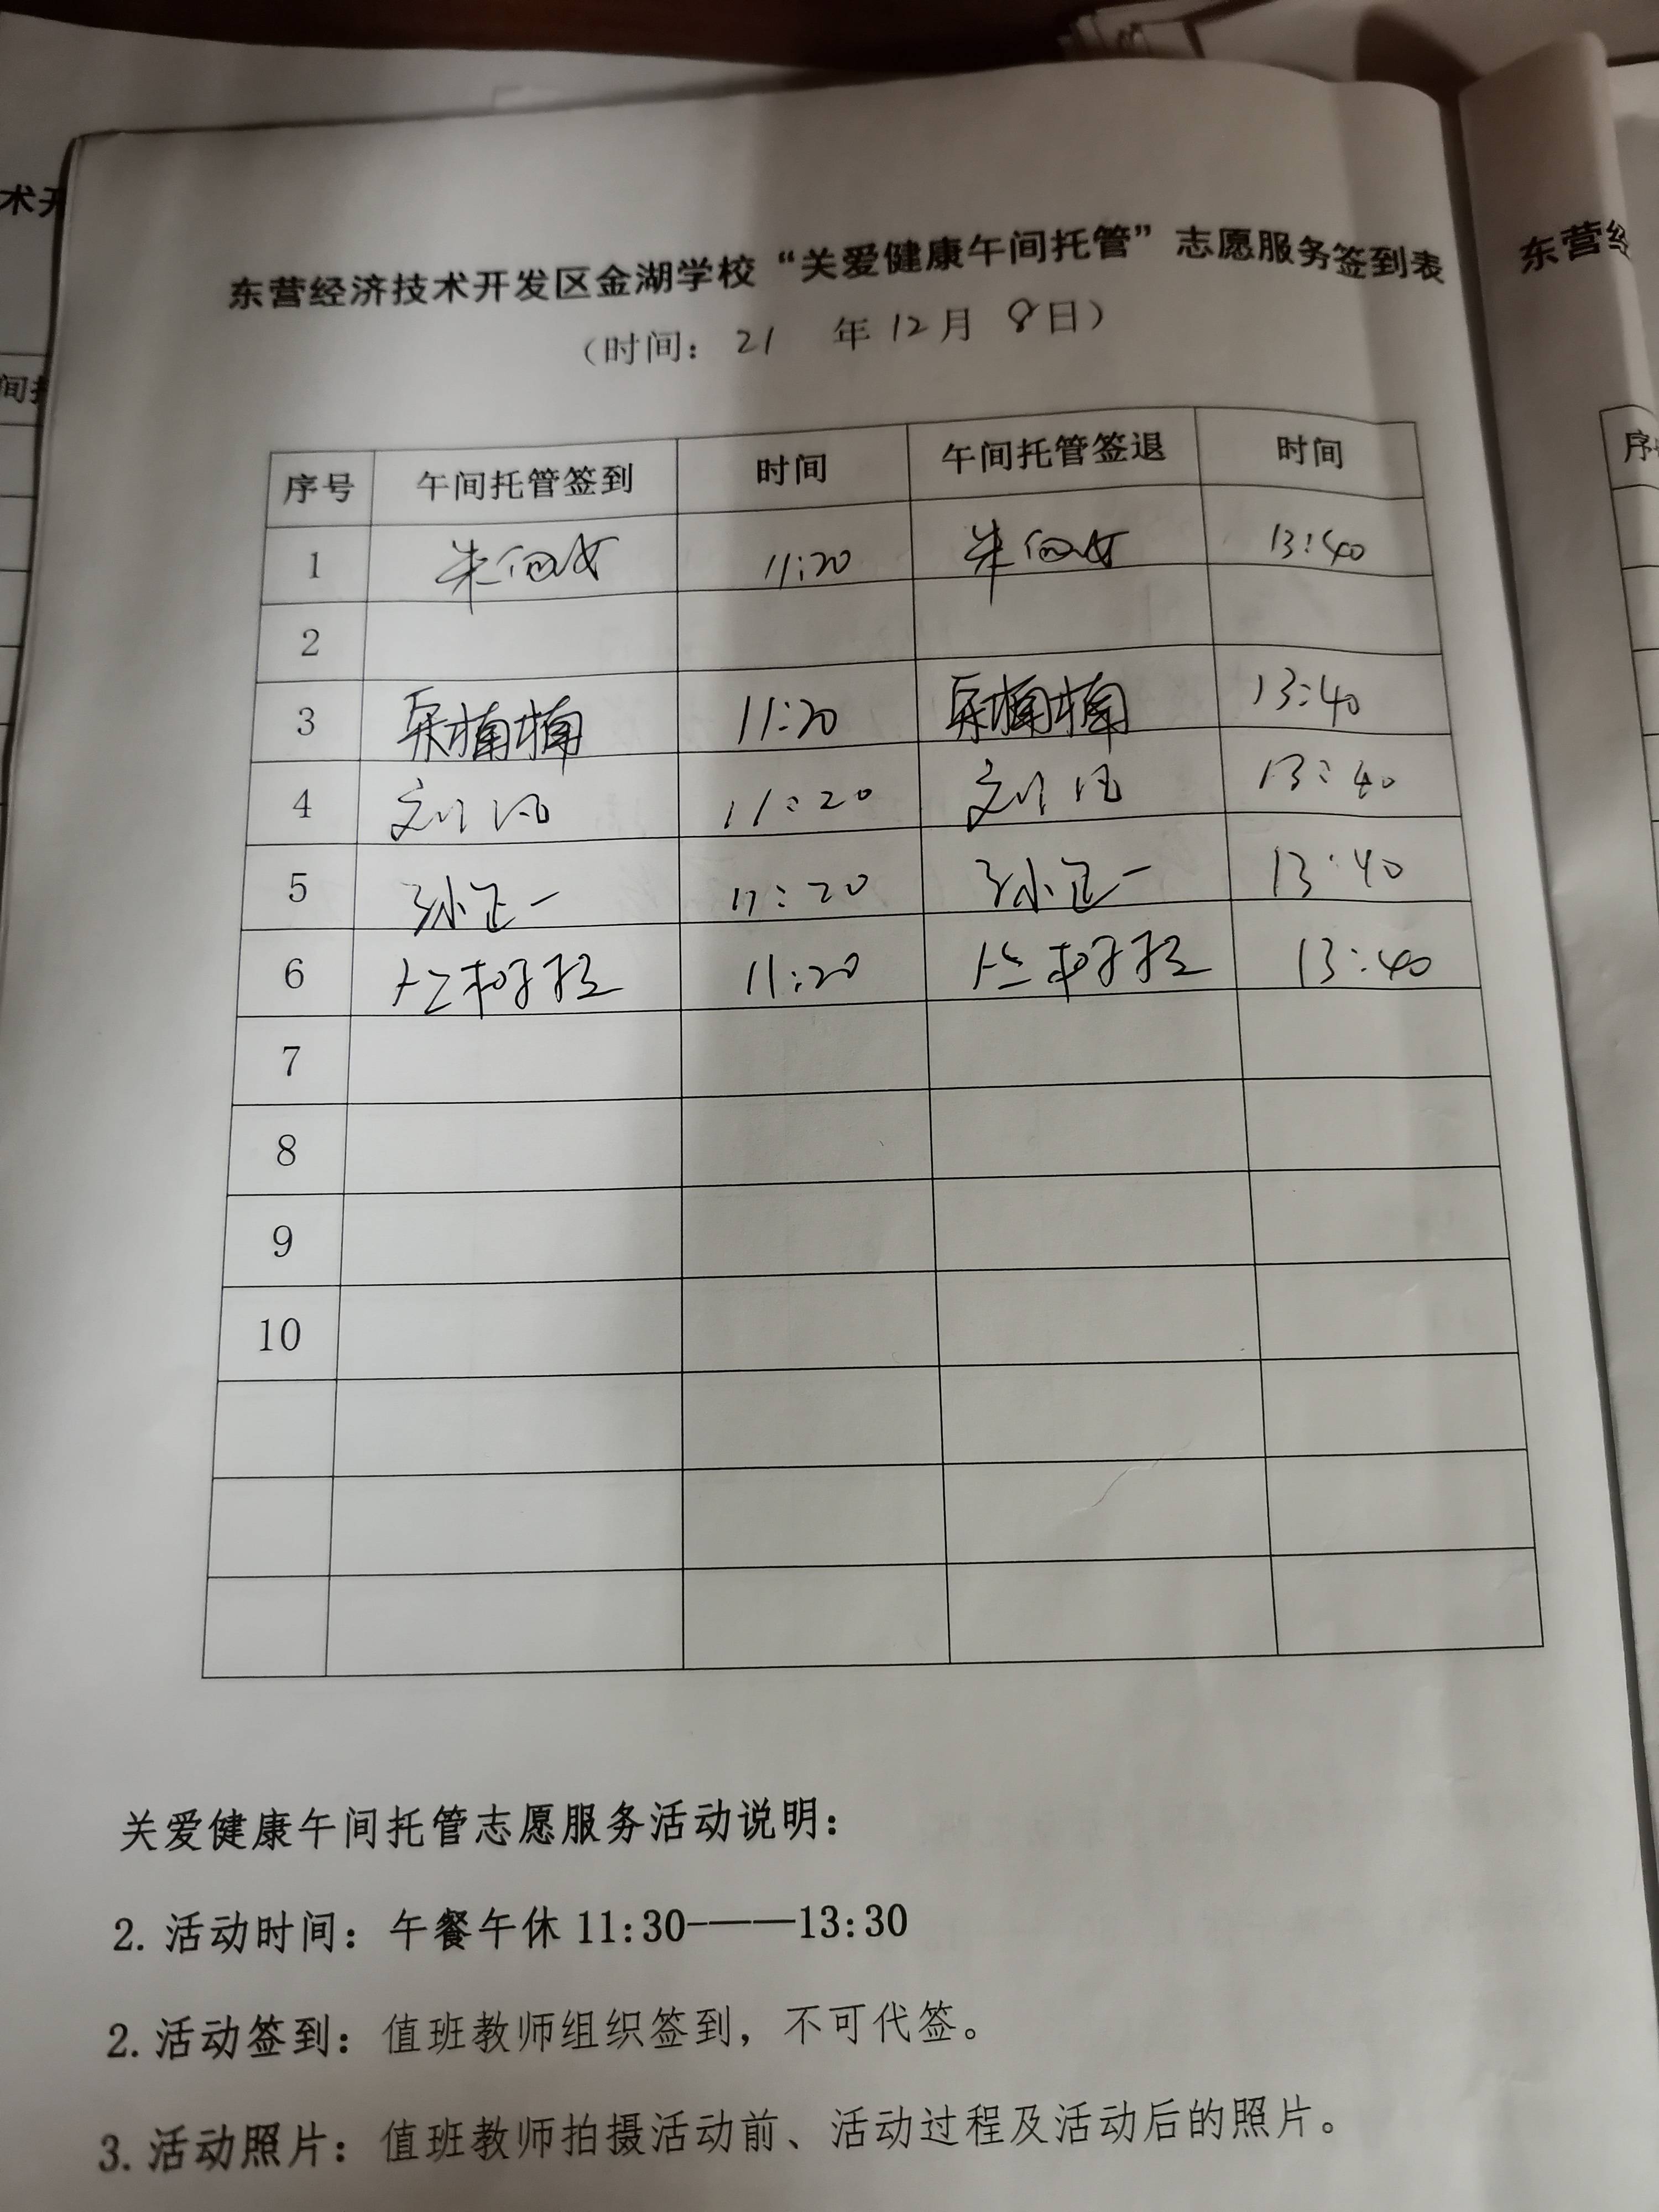 东营经济技术开发区金湖学校“关爱健康午间托管”志愿服务签到表
（时间：21 年12月8日）
序号 午间托管签到 时间 午间托管签退 时间
1 11:20 13:40
2
3 楠楠 11:20 楠楠 13:40
4 刘 11:20 刘 13:40
5 孙正一 11:20 孙正一 13:40
6 11:20 13:40
7
8
9
10
关爱健康午间托管志愿服务活动说明：
2. 活动时间：午餐午休 11:30-——13:30
2. 活动签到：值班教师组织签到，不可代签。
3. 活动照片：值班教师拍摄活动前、活动过程及活动后的照片。
术开
间托
东营经
序号